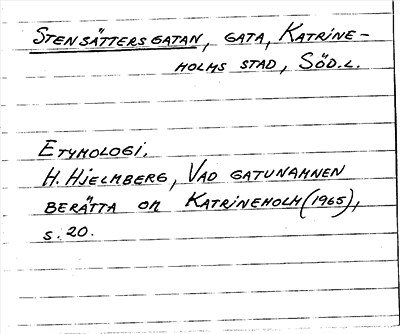 STENSÄTTERSGATAN, GATA, KATRINE-
HOLMS STAD, SÖD.L.
ETYMOLOGI.
H. HJELMBERG, VAD GATUNAMNEN
BERÄTTA OM KATRINEHOLM (1965),
S. 20.